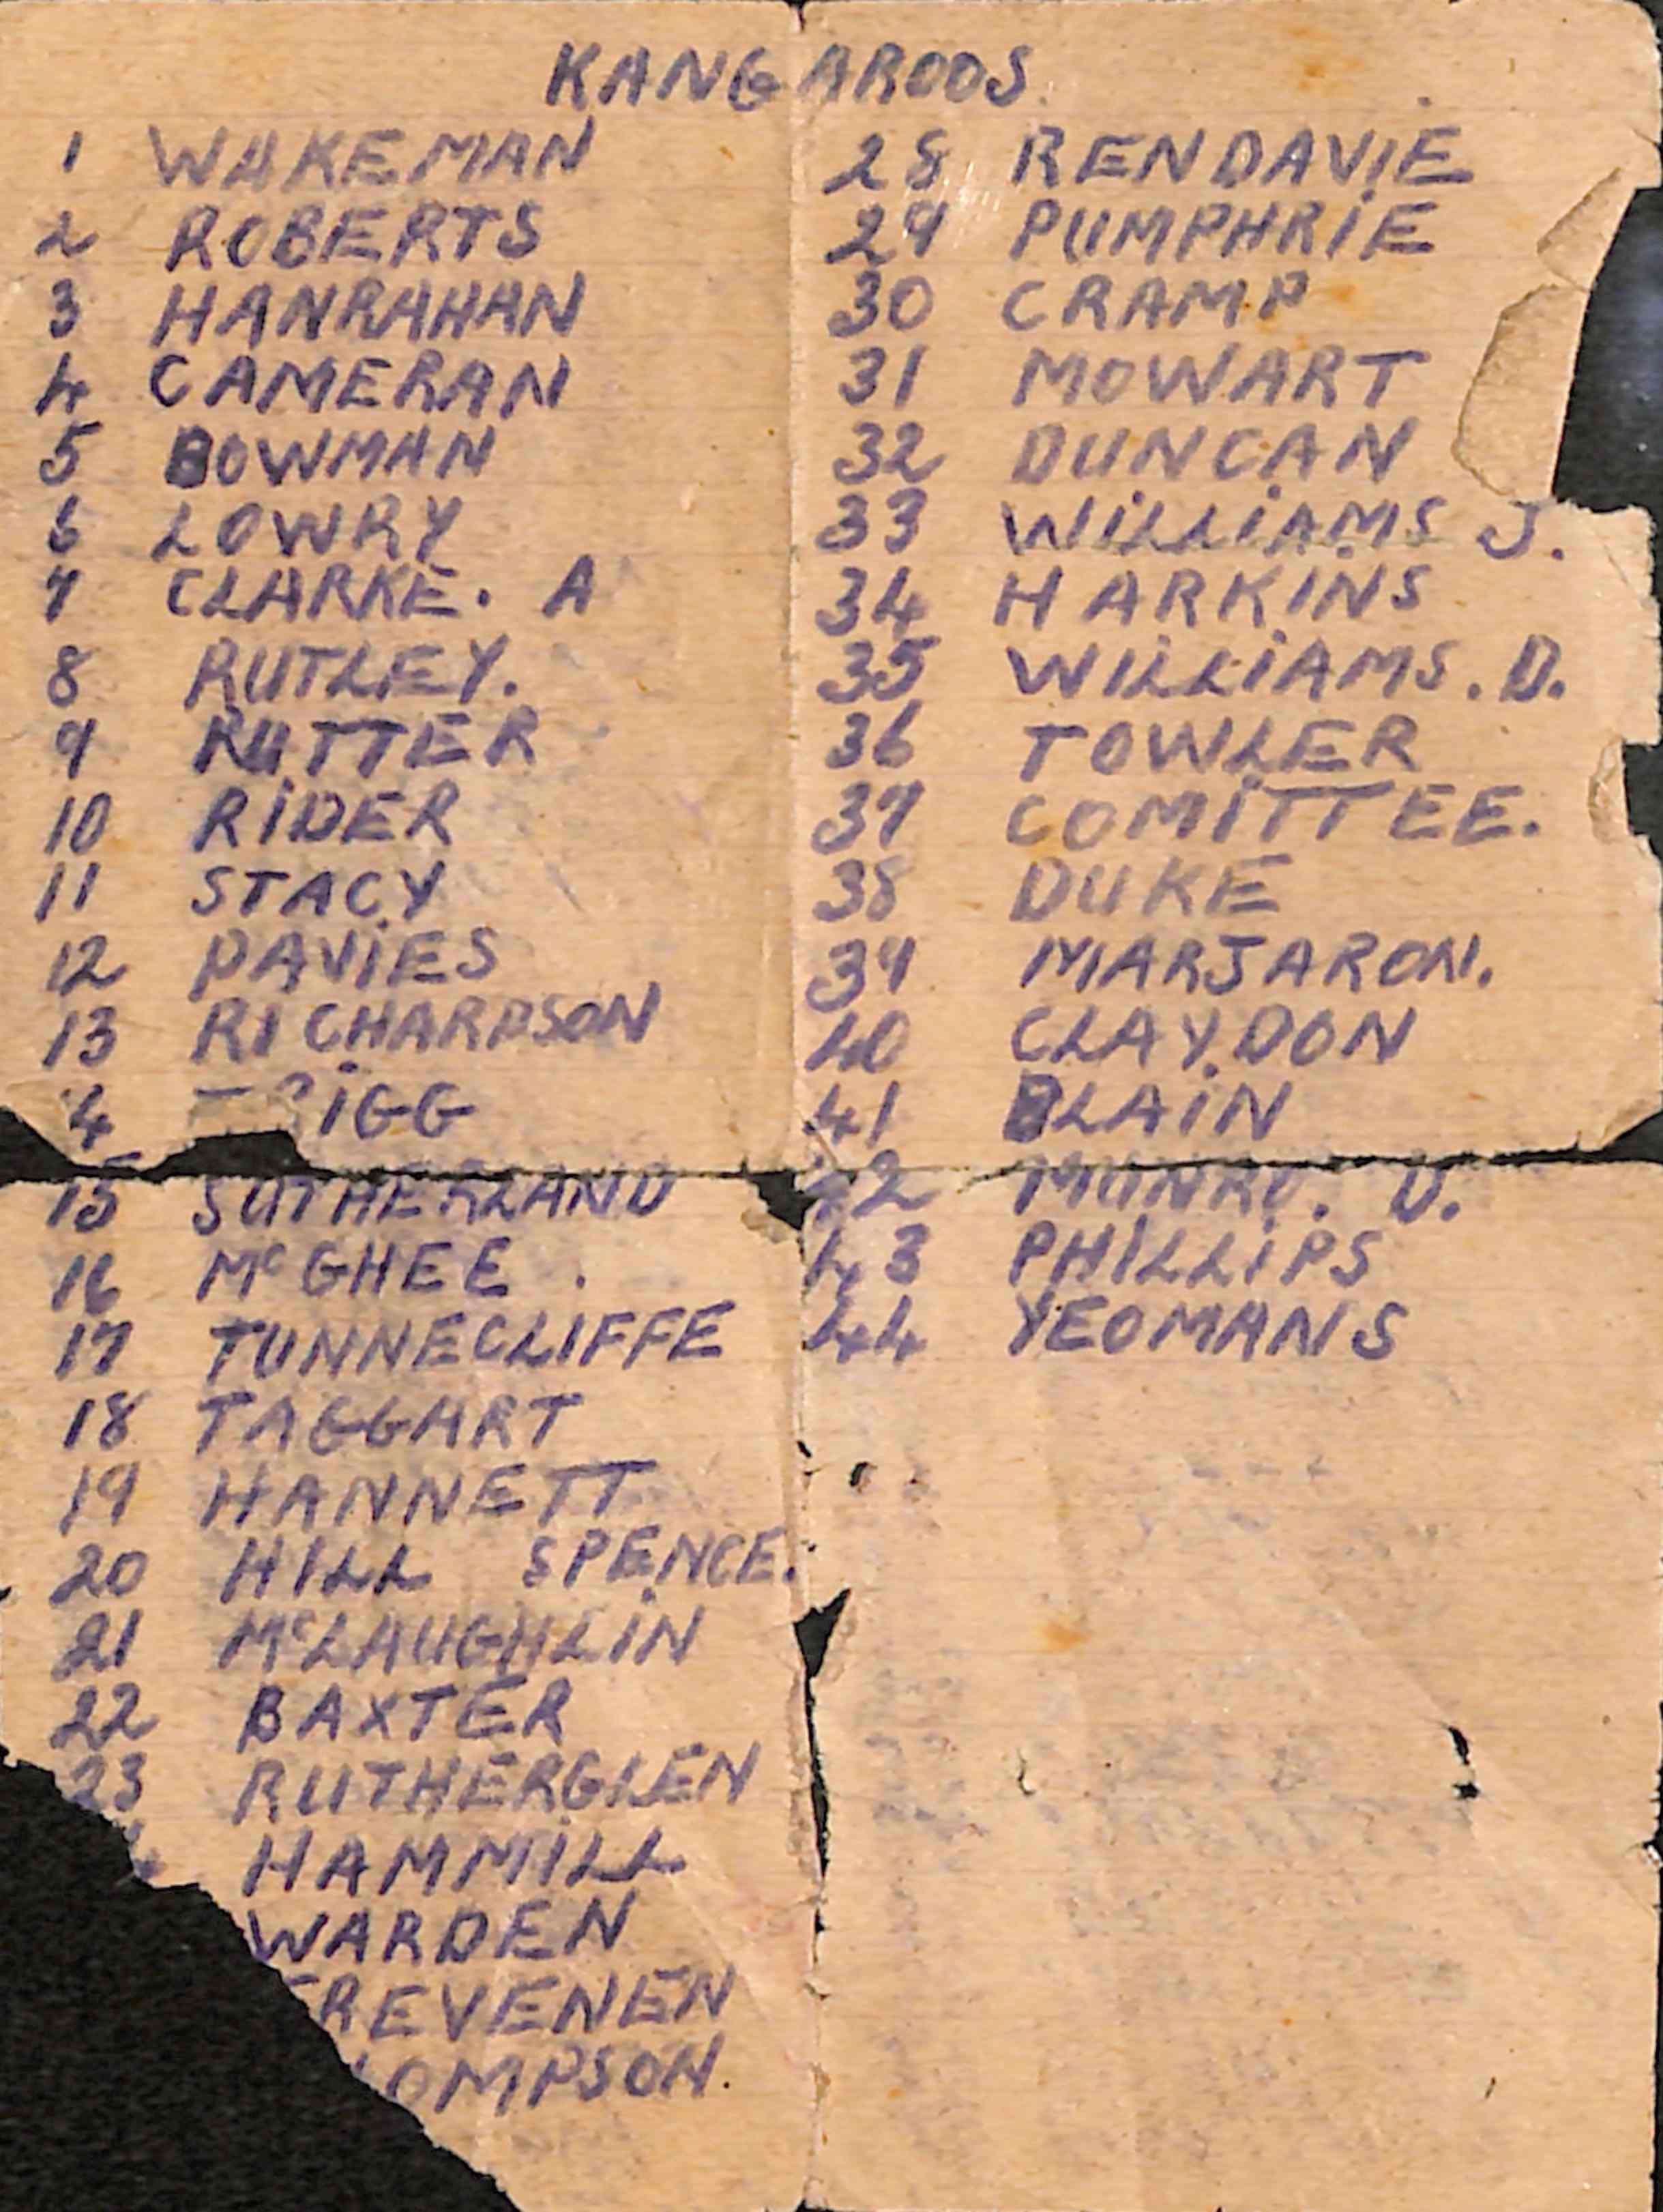 KANGAROOS
1 WAKEMAN
2 ROBERTS
3 HANRAHAN
4 CAMERAN
5 BOWMAN
6 LOWRY
7 CLARKE. A
8 RUTLEY.
9 RUTTER
10 RiDER
11 STACY
12 DAViES
13 RICHARDSON
4
15 SUTHERLAND
16 McGHEE.
17 TUNNECLIFFE
18 TAGGART
19 HANNETT
20 HILL SPENCE.
21 McLAUGHLiN
22 BAXTER
23 RUTHERGLEN
HAMMiLL
WARDEN
REVENEN
OMPSON.
28 RENDAViE
29 PUMPHRiE
30 CRAMP
31 MOWART
32 DUNCAN
33 WiLLiAMS J.
34 HARKiNS
35 WiLLiAMS. D.
36 TOWLER
37 COMiTTEE.
38 DUKE
39 MARJARON.
40 CLAYDON
41 BLAiN
42 MUNRO. D.
43 PHiLLiPS
44 YEOMANS